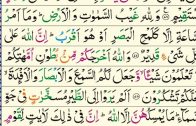 وَلِلَّهِ غَيْبُ السَّمٰوٰتِ وَالْأَرْضِ وَمَا أَمْرُ
إِلَّا كَلَمْحِ الْبَصَرِ أَوْ هُوَ أَقْرَبُ إِنَّ اللَّهَ عَلَى
شَيْءٍ قَدِيرٌ وَاللَّهُ أَخْرَجَكُمْ مِّنْ بُطُونِ أُمَّهٰتِكُمْ
تَعْلَمُونَ شَيْئًا وَجَعَلَ لَكُمُ السَّمْعَ وَالْأَبْصَارَ وَالْأَفْئِدَةَ
لَعَلَّكُمْ تَشْكُرُونَ أَلَمْ يَرَوْا إِلَى الطَّيْرِ مُسَخَّرٰتٍ فِي جَوِّ
مَا يُمْسِكُهُنَّ إِلَّا اللَّهُ إِنَّ فِي ذٰلِكَ